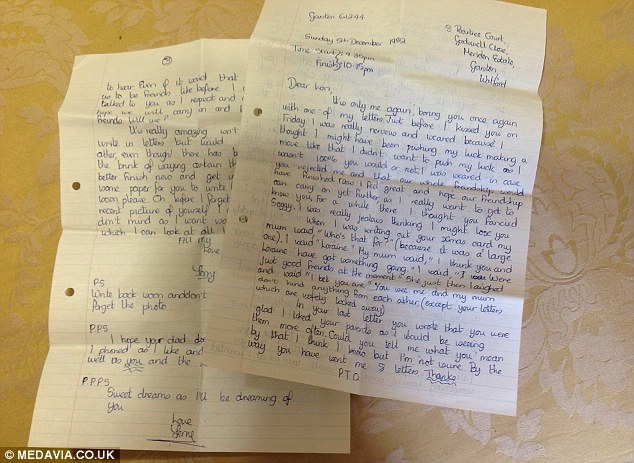 Ganten 61244
Sunday 5th December 1992
Time Start: 9.35pm
Finish: 10.15pm
Court,
Close,
Meriden Estate,
Garston,
Watford
Dear Lor,
It's only me again, boring you once again
with one of my letters. Just before I kissed you on
Friday I was really nervous and weared because I
thought I might have been pushing my luck making a
move like that. I didn't want to push my luck as I
wasn't 100% you would or not. I was weared in case
you rejected me and that our whole friendship would
have finished. Now I feel great and hope our friendship
can carry on yet further as I really want to get to
know you. For a while there I thought you fancied
Soggy. I was really jealous thinking I might lose you
When I was writing out your xmas card my
mum said "Who's that for?" (because it was a large
one). I said "Loraine". My mum said," I thank you and
Loraine have got something going." I said," I were
just good friends at the moment." She just then laughed
and said "I bet you are." You see me and my mum
don't hind anything from each other (except your letters
which are safely locked away)
In your last letter you wrote that you were
glad I liked your parents as I would be seeing
them more often. Could you tell me what you mean
by that I think I know but I'm not sure. By the
way you have sent me 5 letters Thanks
P.T.O
3
to hear. Even if it would that
us to be friends like before I
talked to you as I respect and
hope we will carry on and
friends. Will we?
It's really amazing isn't
write in letters but would
other even though there has b
the brink of saying certain th
better finish now and get
some paper for you to write
soon please. Oh before I forget
recent picture of yourself
don't mind as I want
which I can look at all
All my
Love
P.S
Write back soon and don't
forget the photo
P.P.S
I hope your dad do
I phoned as I like and
well as you and the
P.P.P.S
Sweet dreams as I'll be dreaming of
you
Love
© MEDAVIA.CO.UK